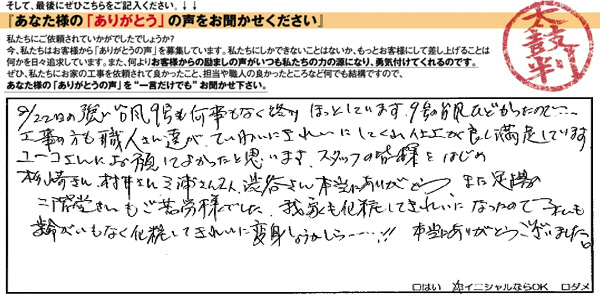 そして、最後にぜひこちらをご記入ください。↓↓
『あなた様の「ありがとう」の声をお聞かせください』
私たちにご依頼されていかがでしたでしょうか?
今、私たちはお客様から「ありがとうの声」を募集しています。私たちにしかできないことはないか、もっとお客様にして差し上げることは
何かを日々追求しています。また、何よりお客様からの励ましの声がいつも私たちの力の源になり、勇気付けてくれるのです。
ぜひ、私たちにお家の工事を依頼されて良かったこと、担当や職人の良かったところなど何でも結構ですので、
あなた様の「ありがとうの声」を“一言だけでも”お聞かせ下さい。
太鼓判
8/22の強い台風9号も何事もなく終り ほっとしています。9号台風ひどかったので…
工事の方も職人さん達が、ていねいにきれいにしてくれ仕上が良し満足しています
ユーコーさんにお願してよかったと思います。スタッフの皆様をはじめ
松崎さん、村井さん、三浦さん2人、渋谷さん本当にありがとう また足場の
二階堂さんもご苦労様でした。我家も化粧してきれいになったので 私も
齢がいもなく化粧してきれいに変身しようかしら……!! 本当にありがとうございました。
□はい イニシャルならOK □ダメ